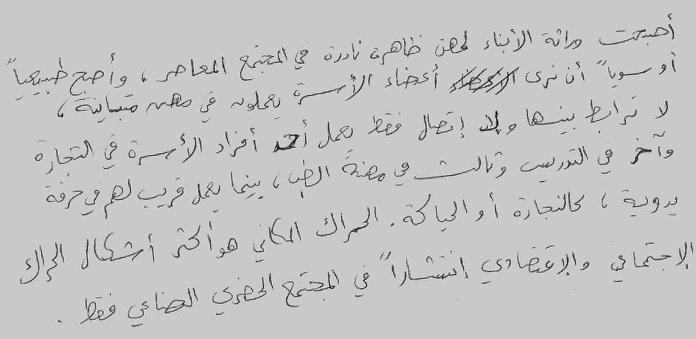 أصبحت وراثة الأبناء لمهن ظاهرة نادرة في المجتمع المعاصر ، وأصبح طبيعياً
أو سوياً أن نرى أعضاء الأسرة يعملون في مهن متباينة ،
لا ترابط بينها ولا إتصال فقط يعمل أحد أفراد الأسرة في التجارة
وآخر في التدريس وثالث في مهنة الطب ، بينما يعمل قريب لهم في حرفة
يدوية ، كالنجارة أو الحياكة . الحراك المكاني هو أكثر أشكال الحراك
الإجتماعي والإقتصادي إنتشاراً في المجتمع الحضري الصناعي فقط .